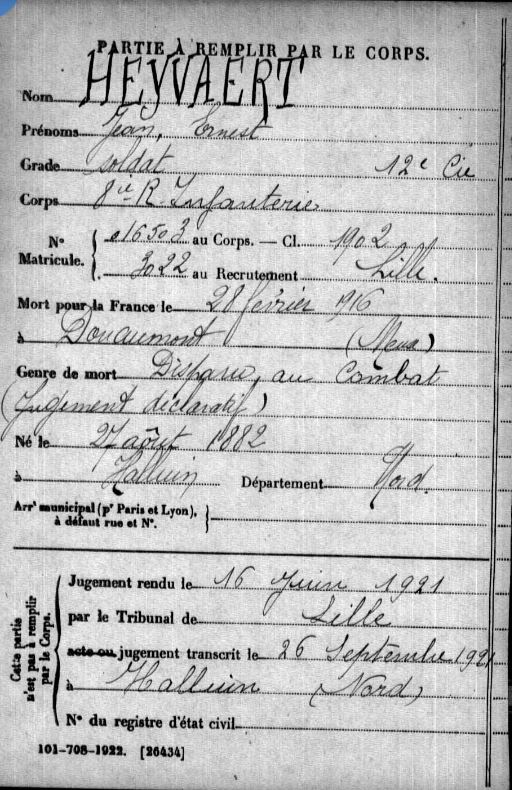 PARTIE À REMPLIR PAR LE CORPS.
Nom HEYVAERT
Prénoms Jean, Ernest
Grade soldat 12e Cie
Corps 8me R. Infanterie
N° Matricule. { 016503 au Corps. — Cl. 1902
3022 au Recrutement Lille.
Mort pour la France le 28 février 1916
à Douaumont (Meuse)
Genre de mort Disparu, au Combat
(Jugement déclaratif)
Né le 27 août 1882
à Halluin Département Nord.
Arrt municipal (pr Paris et Lyon), à défaut rue et N°. }
Cette partie n'est pas à remplir par le Corps.
Jugement rendu le 16 Juin 1921
par le Tribunal de Lille
acte ou jugement transcrit le 26 Septembre 1921
à Halluin (Nord)
N° du registre d'état civil
101-708-1922. [26434]